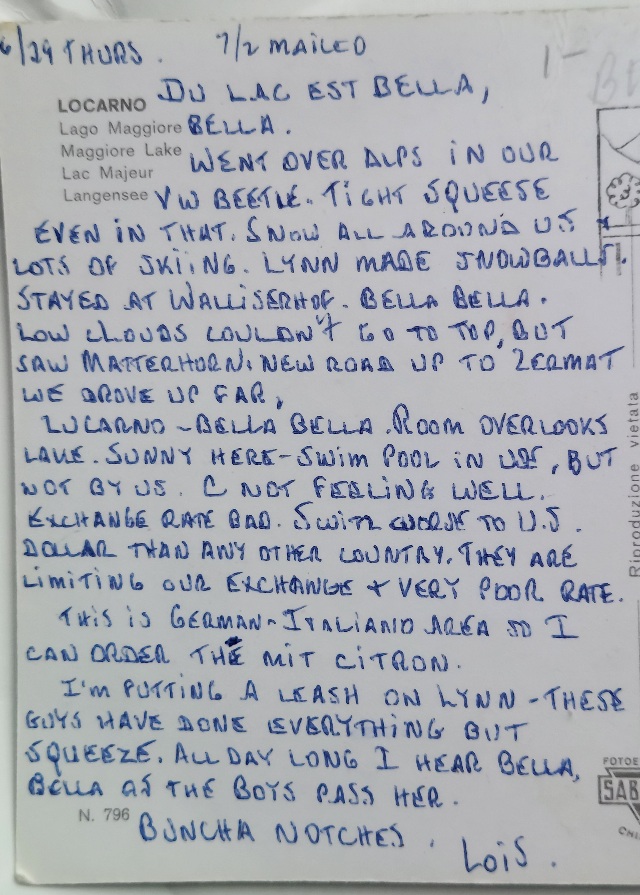 6/29 THURS. 7/2 MAILED
1-
BE
LOCARNO
Lago Maggiore
Maggiore Lake
Lac Majeur
Langensee
DU LAC EST BELLA,
BELLA.
WENT OVER ALPS IN OUR
VW BEETLE. TIGHT SQUEESE
EVEN IN THAT. SNOW ALL AROUND US +
LOTS OF SKIING. LYNN MADE SNOWBALLS.
STAYED AT WALLISERHOF. BELLA BELLA.
LOW CLOUDS COULDN'T GO TO TOP, BUT
SAW MATTERHORN. NEW ROAD UP TO ZERMAT
WE DROVE UP FAR,
LUCARNO - BELLA BELLA. ROOM OVERLOOKS
LAKE. SUNNY HERE - SWIM POOL IN USE, BUT
NOT BY US. C NOT FEELING WELL.
EXCHANGE RATE BAD. SWITZ WORSE TO U.S.
DOLLAR THAN ANY OTHER COUNTRY. THEY ARE
LIMITING OUR EXCHANGE + VERY POOR RATE.
THIS IS GERMAN-ITALIANO AREA SO I
CAN ORDER THE MIT CITRON.
I'M PUTTING A LEASH ON LYNN - THESE
GUYS HAVE DONE EVERYTHING BUT
SQUEEZE. ALL DAY LONG I HEAR BELLA,
BELLA AS THE BOYS PASS HER.
N. 796
BUNCHA NOTCHES.
LOIS.
Riproduzione vietata
FOTOE
SAB